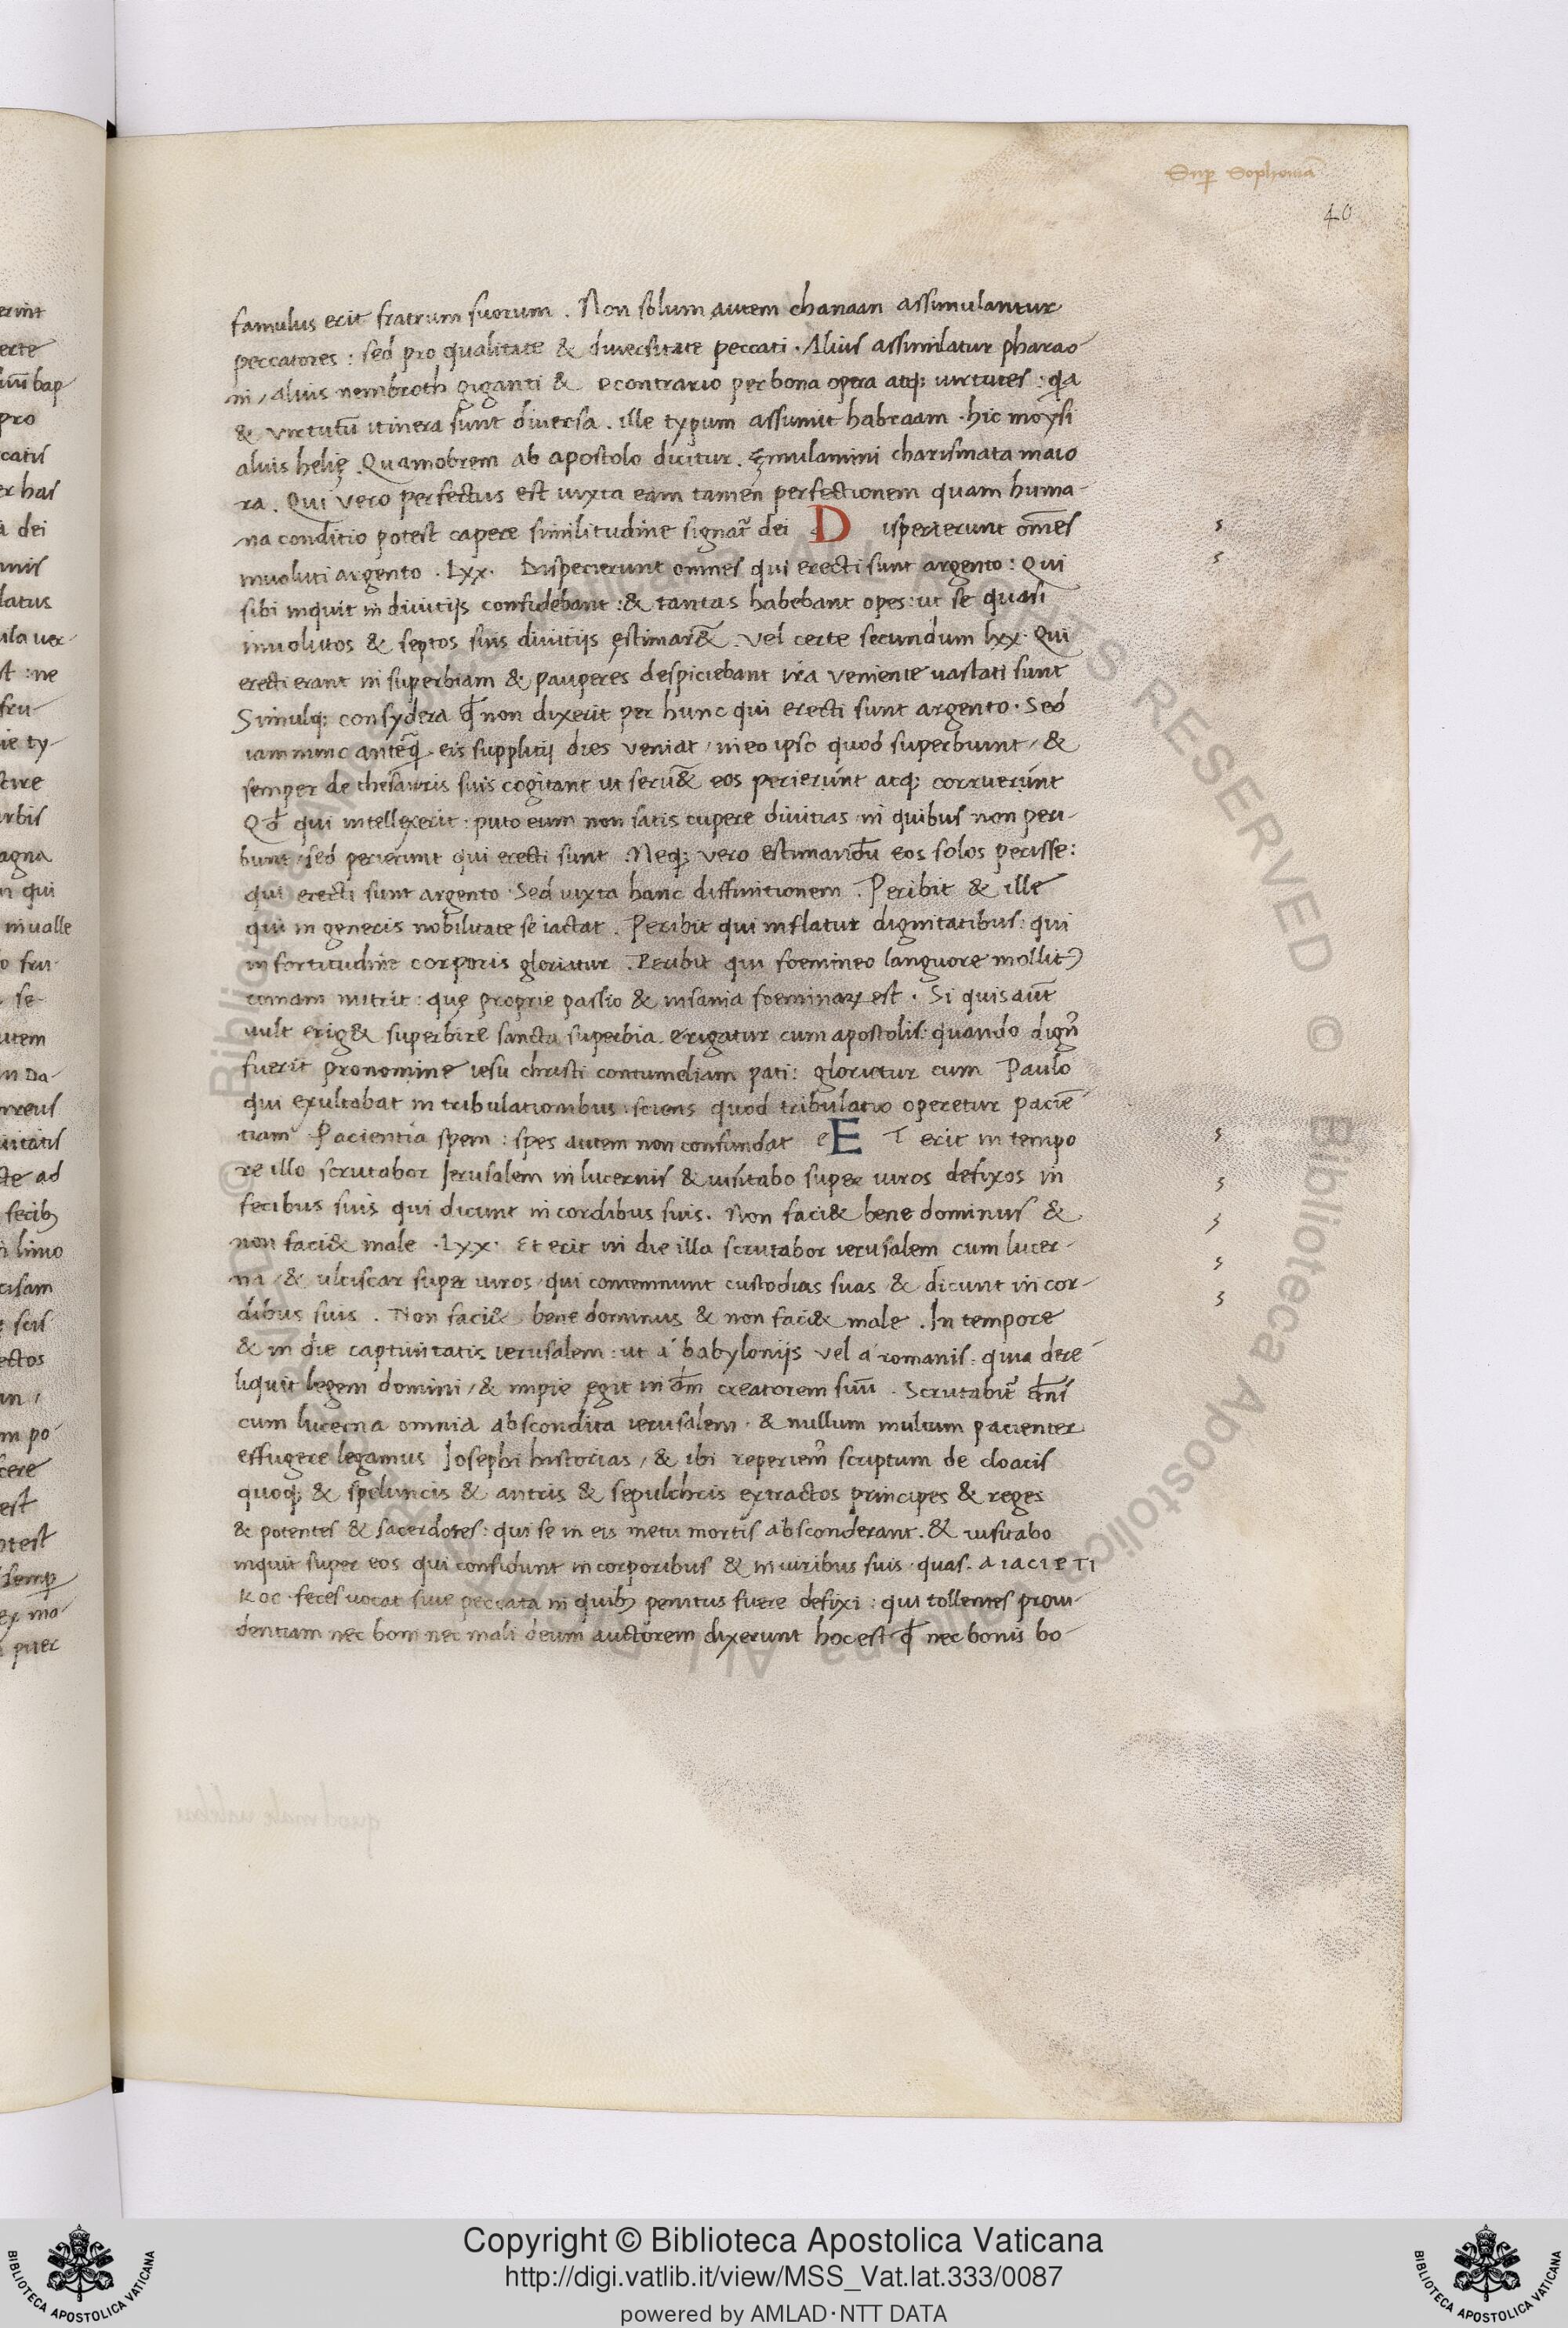 Sup Sophoniā
40
famulus erit fratrum suorum . Non solum autem chanaan assimulantur
peccatores : sed pro qualitate & diversitate peccati . Alius assimilatur pharao-
ni , alius nembroth giganti & econtrario per bona opera atq; virtutes : qa
& virtutū itinera sunt diversa . ille typum assumit habraam . hic moysi
alius helię . Quamobrem ab apostolo dicitur . Ęmulamini charismata maio
ra . Qui vero perfectus est iuxta eam tamen perfectionem quam huma-
na conditio potest capere similitudine signat̃ dei D isperierunt om̃es
involuti argento . Lxx . Disperierunt omnes qui erecti sunt argento : Qui
sibi inquit in divitijs confidebant : & tantas habebant opes : ut se quasi
involutos & septos suis divitijs ęstimar& . vel certe secundum lxx . Qui
erecti erant in superbiam & pauperes despiciebant ira veniente vastati sunt
Simulq; consydera qđ non dixerit per hunc qui erecti sunt argento . Sed
iam nunc anteq̃ . eis supplitij dies veniat / in eo ipso quod superbiunt / &
semper de thesauris suis cogitant ut serv& eos perierunt atq; corruerunt
Qđ qui intellexerit . puto eum non satis cupere divitias in quibus non peri-
bunt / sed perierunt qui erecti sunt . Neq; vero estimandū eos solos perisse :
qui erecti sunt argento . Sed iuxta hanc diffinitionem . Peribit & ille
qui in generis nobilitate se iactat . Peribit qui inflatur dignitatibus : qui
in fortitudine corporis gloriatur . Peribit qui foemineo languore mollit)
comam nutrit : quę proprie passio & insania foeminaꝝ est . Si quis aut̃
vult erig& superbire sancta superbia . erigatur cum apostolis : quando dign᷒
fuerit pro nomine iesu christi contumeliam pati : glorietur cum Paulo
qui exultabat in tribulationibus : sciens quod tribulatio operetur paciē
tiam Pacientia spem : spes autem non confundat e E T erit in tempo
re illo scrutabor Jerusalem in lucernis & visitabo super viros defixos in
fecibus suis qui dicunt in cordibus suis . Non faci& bene dominus &
non faci& male . Lxx . Et erit in die illa scrutabor ierusalem cum lucer-
na / & ulciscar super viros / qui contemnunt custodias suas & dicunt in cor-
dibus suis . Non faci& bene dominus & non faci& male . In tempore
& in die captivitatis ierusalem : ut á babylonijs vel á romanis : quia dere
liquit legem domini / & impie egit in dm̃ creatorem suū . Scrutabit̃ dn̄s
cum lucerna omnia abscondita ierusalem . & nullum multum pacienter
effugere legamus Josephi historias / & ibi reperiem᷒ scriptum de cloacis
quoq; & speluncis & antris & sepulchris extractos principes & reges
& potentes & sacerdotes : qui se in eis metu mortis absconderant . & visitabo
inquit super eos qui confidunt in corporibus & in viribus suis . quas . A IACIETI
KOC . feces vocat sive peccata in quibꝫ penitus fuere defixi : qui tollentes provi-
dentiam nec boni nec mali deum auctorem dixerunt hoc est qđ nec bonis bo-
Copyright © Biblioteca Apostolica Vaticana
http://digi.vatlib.it/view/MSS_Vat.lat.333/0087
powered by AMLAD·NTT DATA